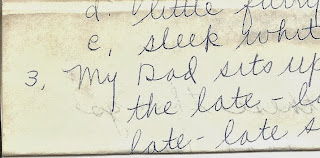 d. little furry
c. sleek whit
3. My Dad sits up
the late la
late-late s